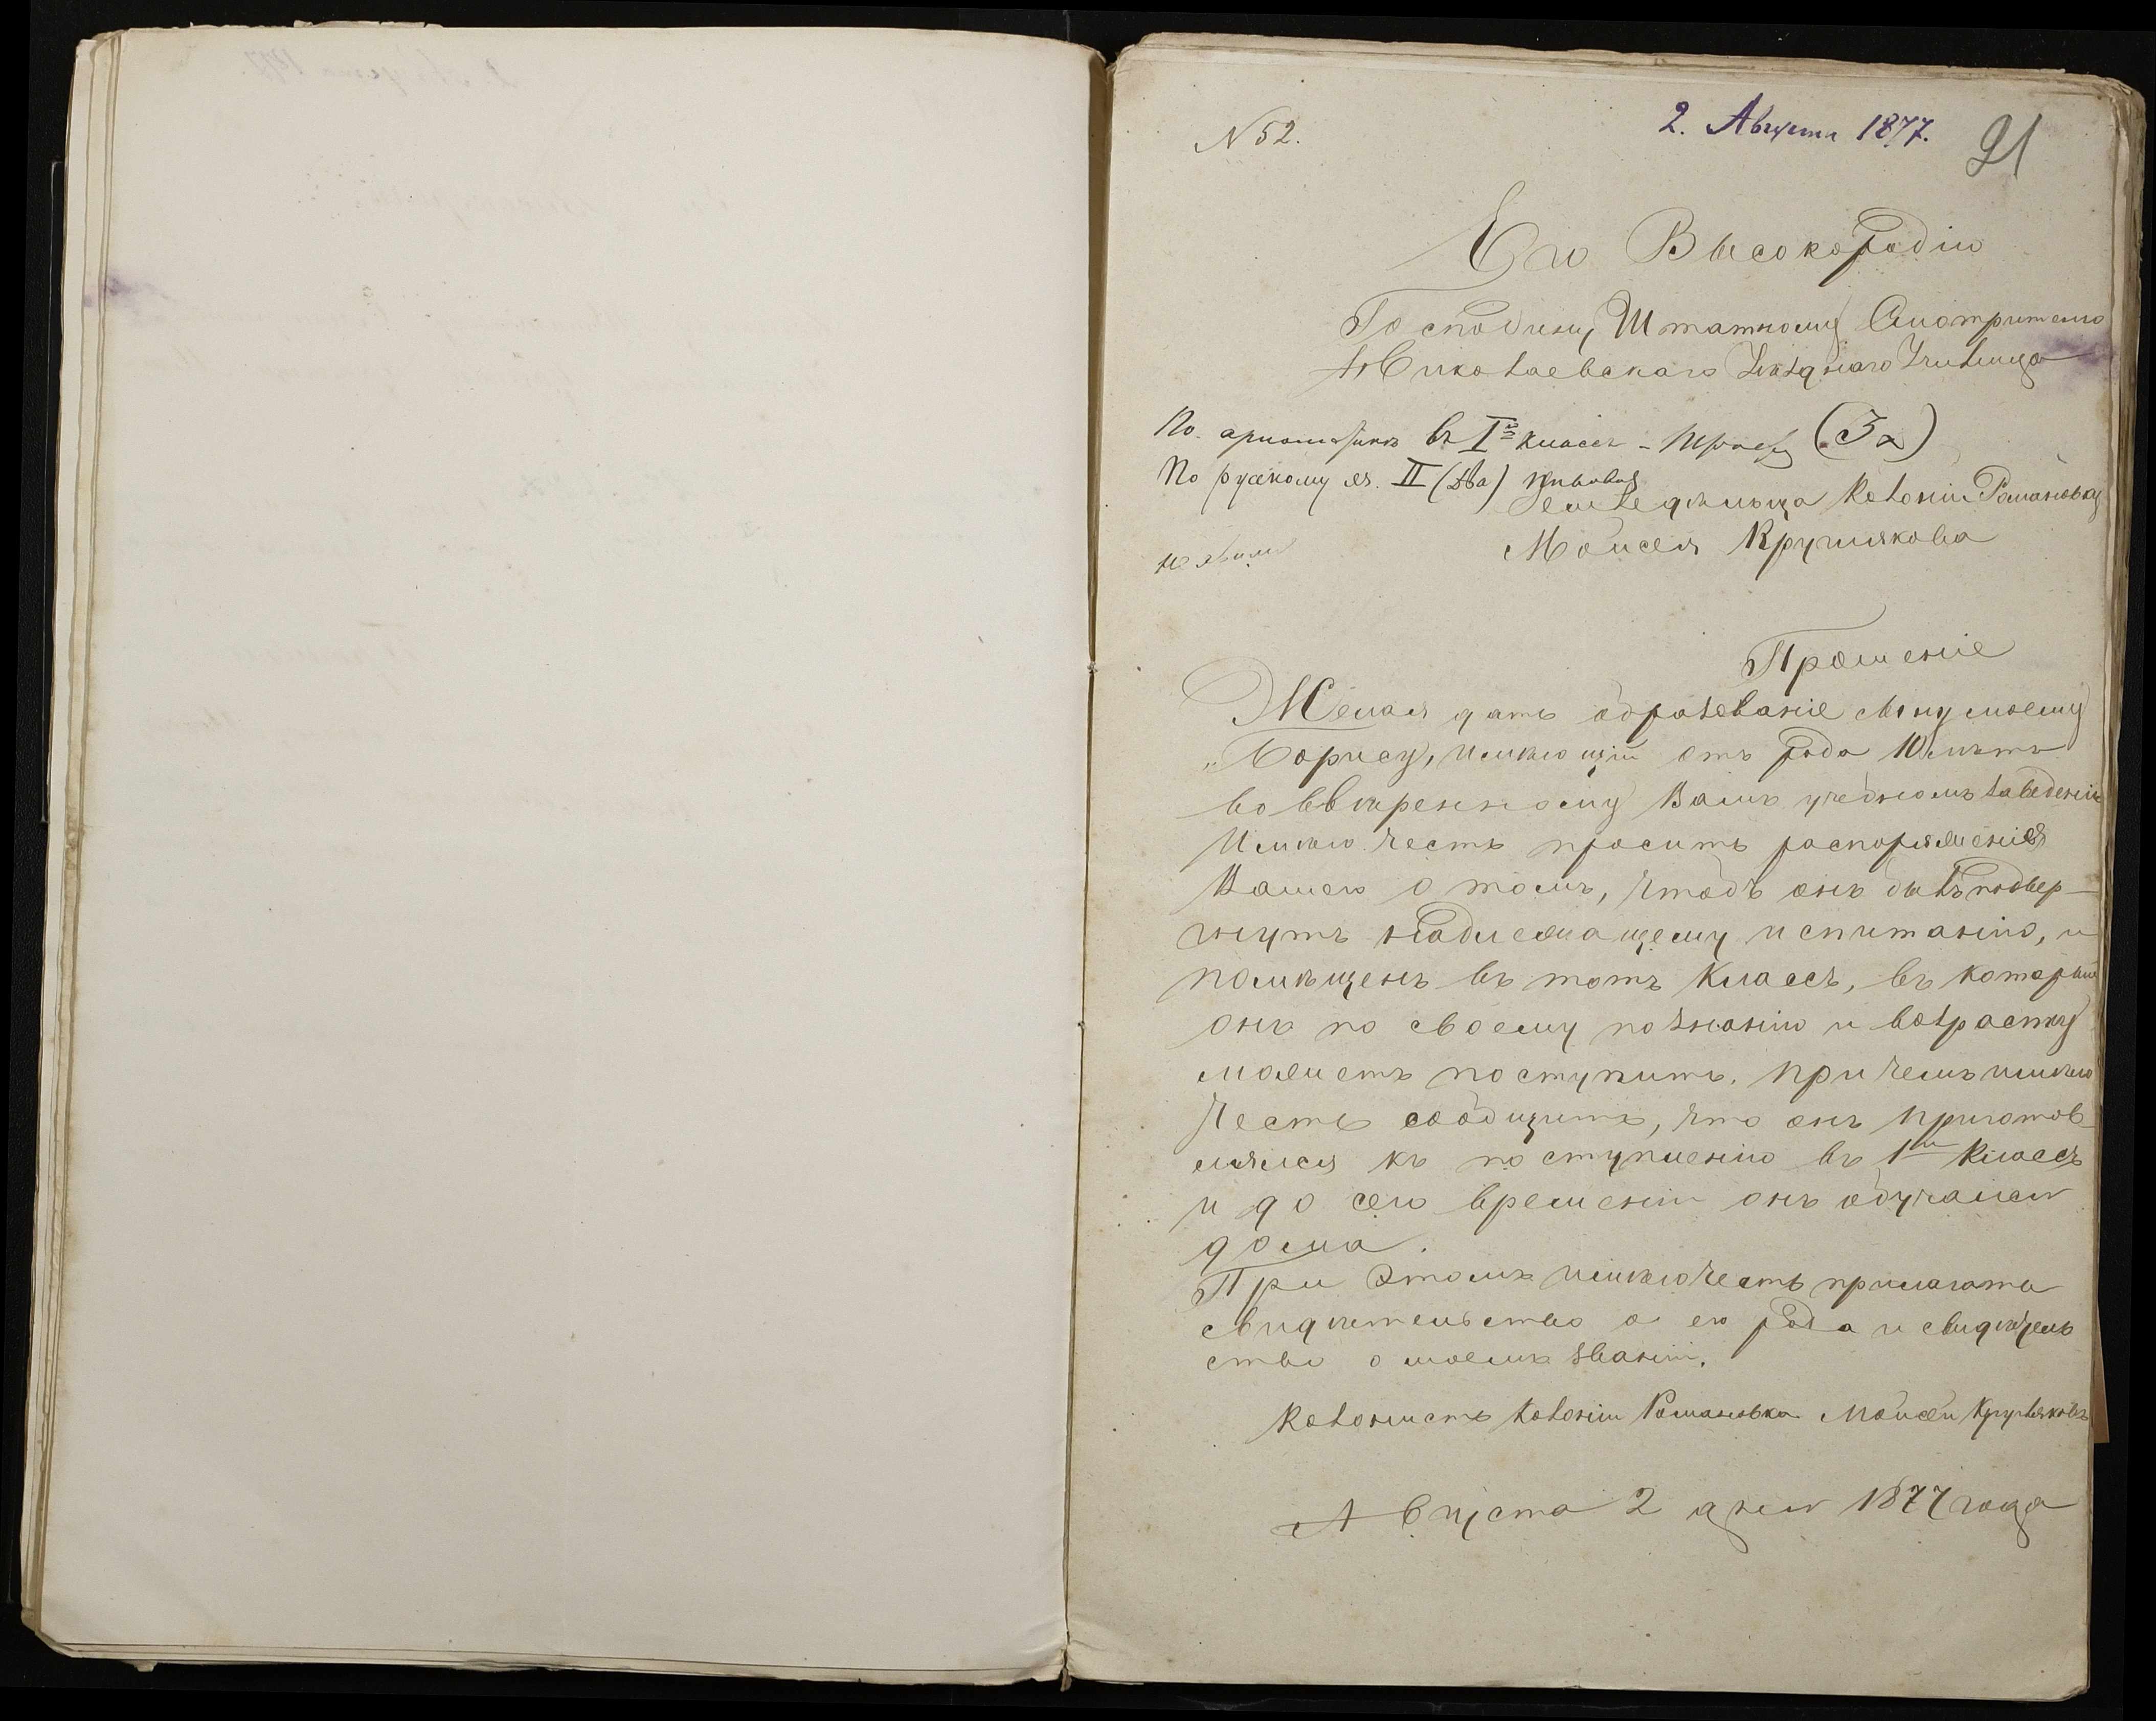 N 52.
2. Августа 1877.
91
Его Высокородію
Господину Штатному Смотрителю
Николаевскаго Уѣзднаго Училища
По ариѳметикѣ въ Iй классъ - (3а)
По русскому яз. II (два)
Земледѣльца Колоніи Романовка
Моисея Круглякова
Прошеніе
Желая дать образеваніе сыну моему
Борису, имѣющій отъ рода 10 лѣтъ
во ввѣренному Вамъ учебномъ заведеніи
Имѣю честь просить распоряженія
Вашего о томъ, чтобъ онъ былъ подвер-
гнутъ надлежащему испитанію, и
помѣщенъ въ тотъ Классъ, въ который
онъ по своему познанію и возрасту
можетъ поступить. При чемъ имѣю
честь сообщить, что онъ приготов
лялся къ поступленію въ 1й Классъ
и до сего времени онъ обучался
дома.
При этомъ имѣю честь прилагать
свидѣтельство о его рода и свидѣтель
ство о моемъ званіи.
Колонистъ Колоніи Романовка Моисей Кругляковъ
Августа 2 дня 1877 года